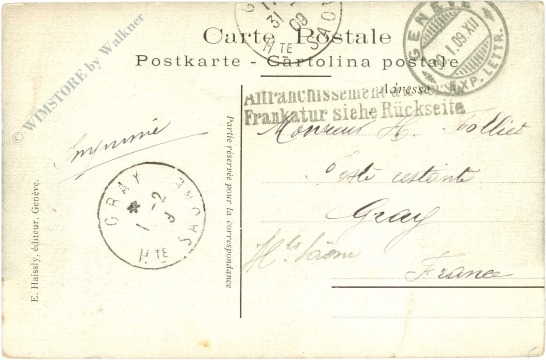 © WIMSTORE by Walkner
Carte Postale
Postkarte - Cartolina postale
Adresse
GENÈVE
1.09.XII
EXP. LETTR.
31
09
Hte SAONE
Affranchissement au
Frankatur siehe Rückseite
Imprimé
Monsieur H. Follier
Poste restante
Gray
Hte Saône
France
GRAY
1 -2
9
Hte SAONE
Partie réservée pour la correspondance
E. Haissly, éditeur, Genève.